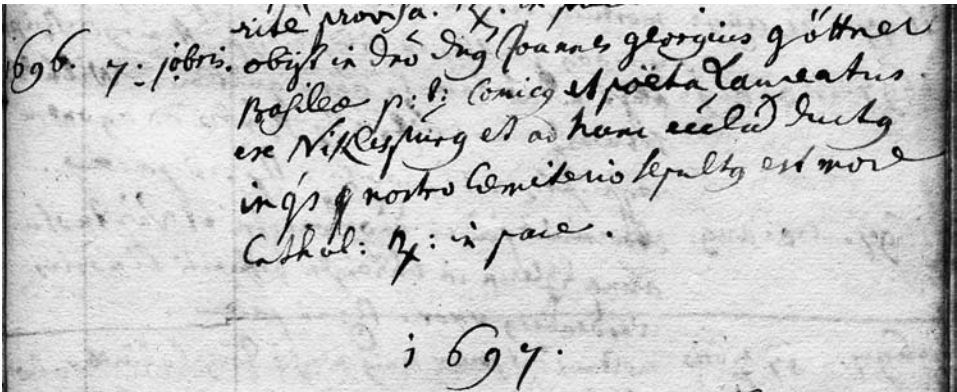 rite provisa. R. in pace
1696. 7. jobris. obijt in dno dns Joannes georgius göttner
Basileæ p: t: Comicq et poëta Laureatus.
ex Niklespurg et ad hanc ductq
in nostro Cœmiterio sepultq est more
Cathol: R: in pace.
1697.